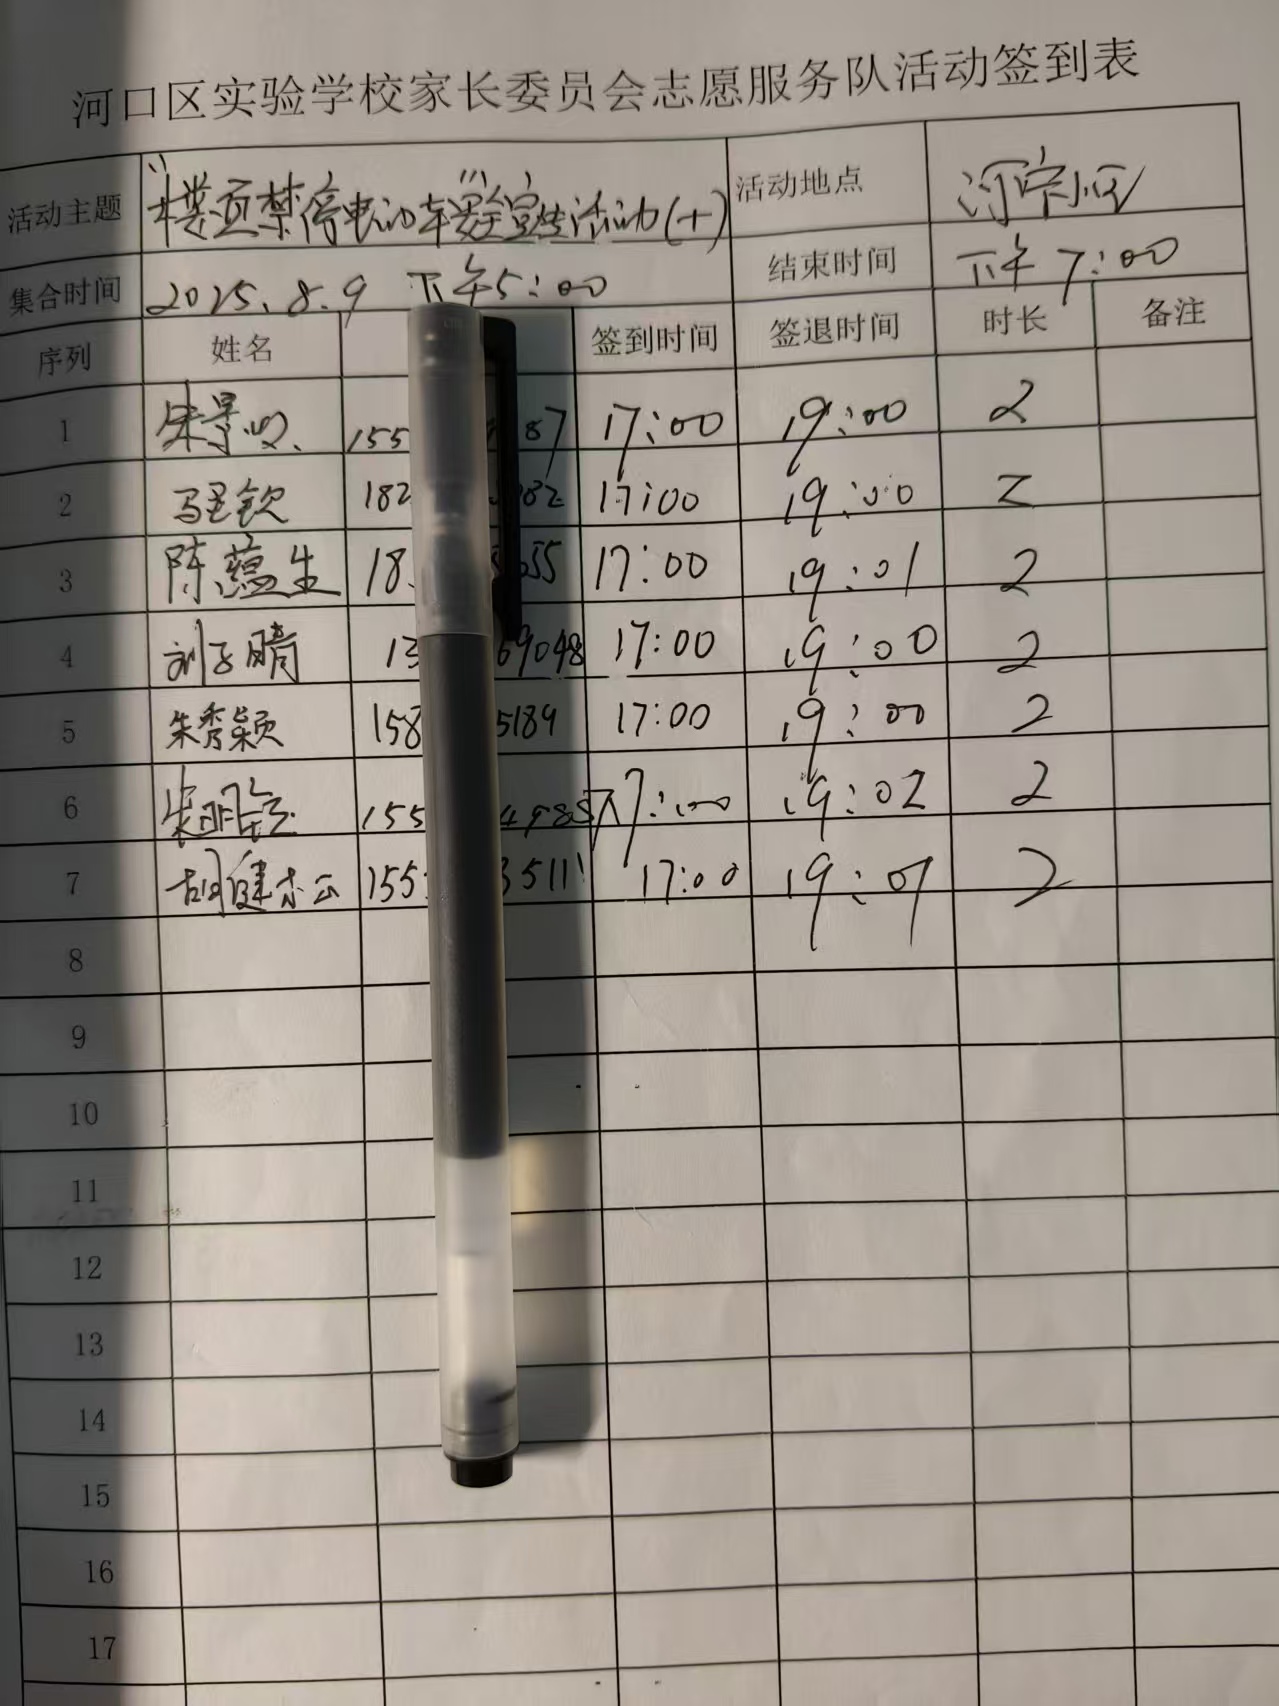 河口区实验学校家长委员会志愿服务队活动签到表
活动主题 楼道禁停电动车安全宣传活动(十) 活动地点 河安小区
集合时间 2025.8.9 下午5:00 结束时间 下午7:00
序列 姓名 签到时间 签退时间 时长 备注
1 155 87 17:00 19:00 2
2 182 982 17:00 19:00 2
3 陈蕴生 18 55 17:00 19:01 2
4 刘子晴 13 69048 17:00 19:00 2
5 朱秀颖 158 5189 17:00 19:00 2
6 155 17:00 19:02 2
7 155 3511 17:00 19:07 2
8
9
10
11
12
13
14
15
16
17